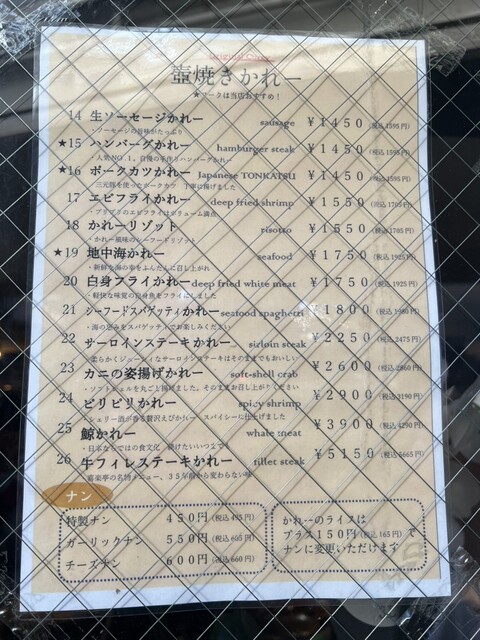 壺焼きかれー
★マークは当店おすすめ!
14 生ソーセージかれー sausage ¥1450 (税込1595円)
・ソーセージの旨味がたっぷり
★15 ハンバーグかれー hamburger steak ¥1450 (税込1595円)
・人気NO.1、自慢の手作りハンバーグかれー
★16 ポークカツかれー Japanese TONKATSU ¥1450 (税込1595円)
17 エビフライかれー deep fried shrimp ¥1550 (税込1705円)
18 かれーリゾット risotto ¥1550 (税込1705円)
・かれー風味のシーフードリゾット
★19 地中海かれー seafood ¥1750 (税込1925円)
・新鮮な海の幸をふんだんに召し上がれ
20 白身フライかれー deep fried white meat ¥1750 (税込1925円)
21 シーフードスパゲッティかれー seafood spaghetti ¥1800 (税込1980円)
・海の恵みをスパゲッティでお楽しみください
22 サーロインステーキかれー sirloin steak ¥2250 (税込2475円)
・柔らかくジューシィなサーロインステーキはそのままでもおいしい
23 カニの姿揚げかれー soft-shell crab ¥2600 (税込2860円)
・ソフトシェルを丸ごと揚げました。そのままお召し上がりください
24 ピリピリかれー spicy shrimp ¥2900 (税込3190円)
・シェリー酒が香る贅沢えびかれー スパイシーに仕上げました
25 鯨かれー whale meat ¥3900 (税込4290円)
・日本ならではの食文化 続けたいいつまでも
26 牛フィレステーキかれー fillet steak ¥5150 (税込5665円)
・喜楽亭の名物メニュー、35年前から変わらない味
ナン
特製ナン 450円 (税込495円)
ガーリックナン 550円 (税込605円)
チーズナン 600円 (税込660円)
かれーのライスは
プラス150円 (税込165円) で
ナンに変更いただけます